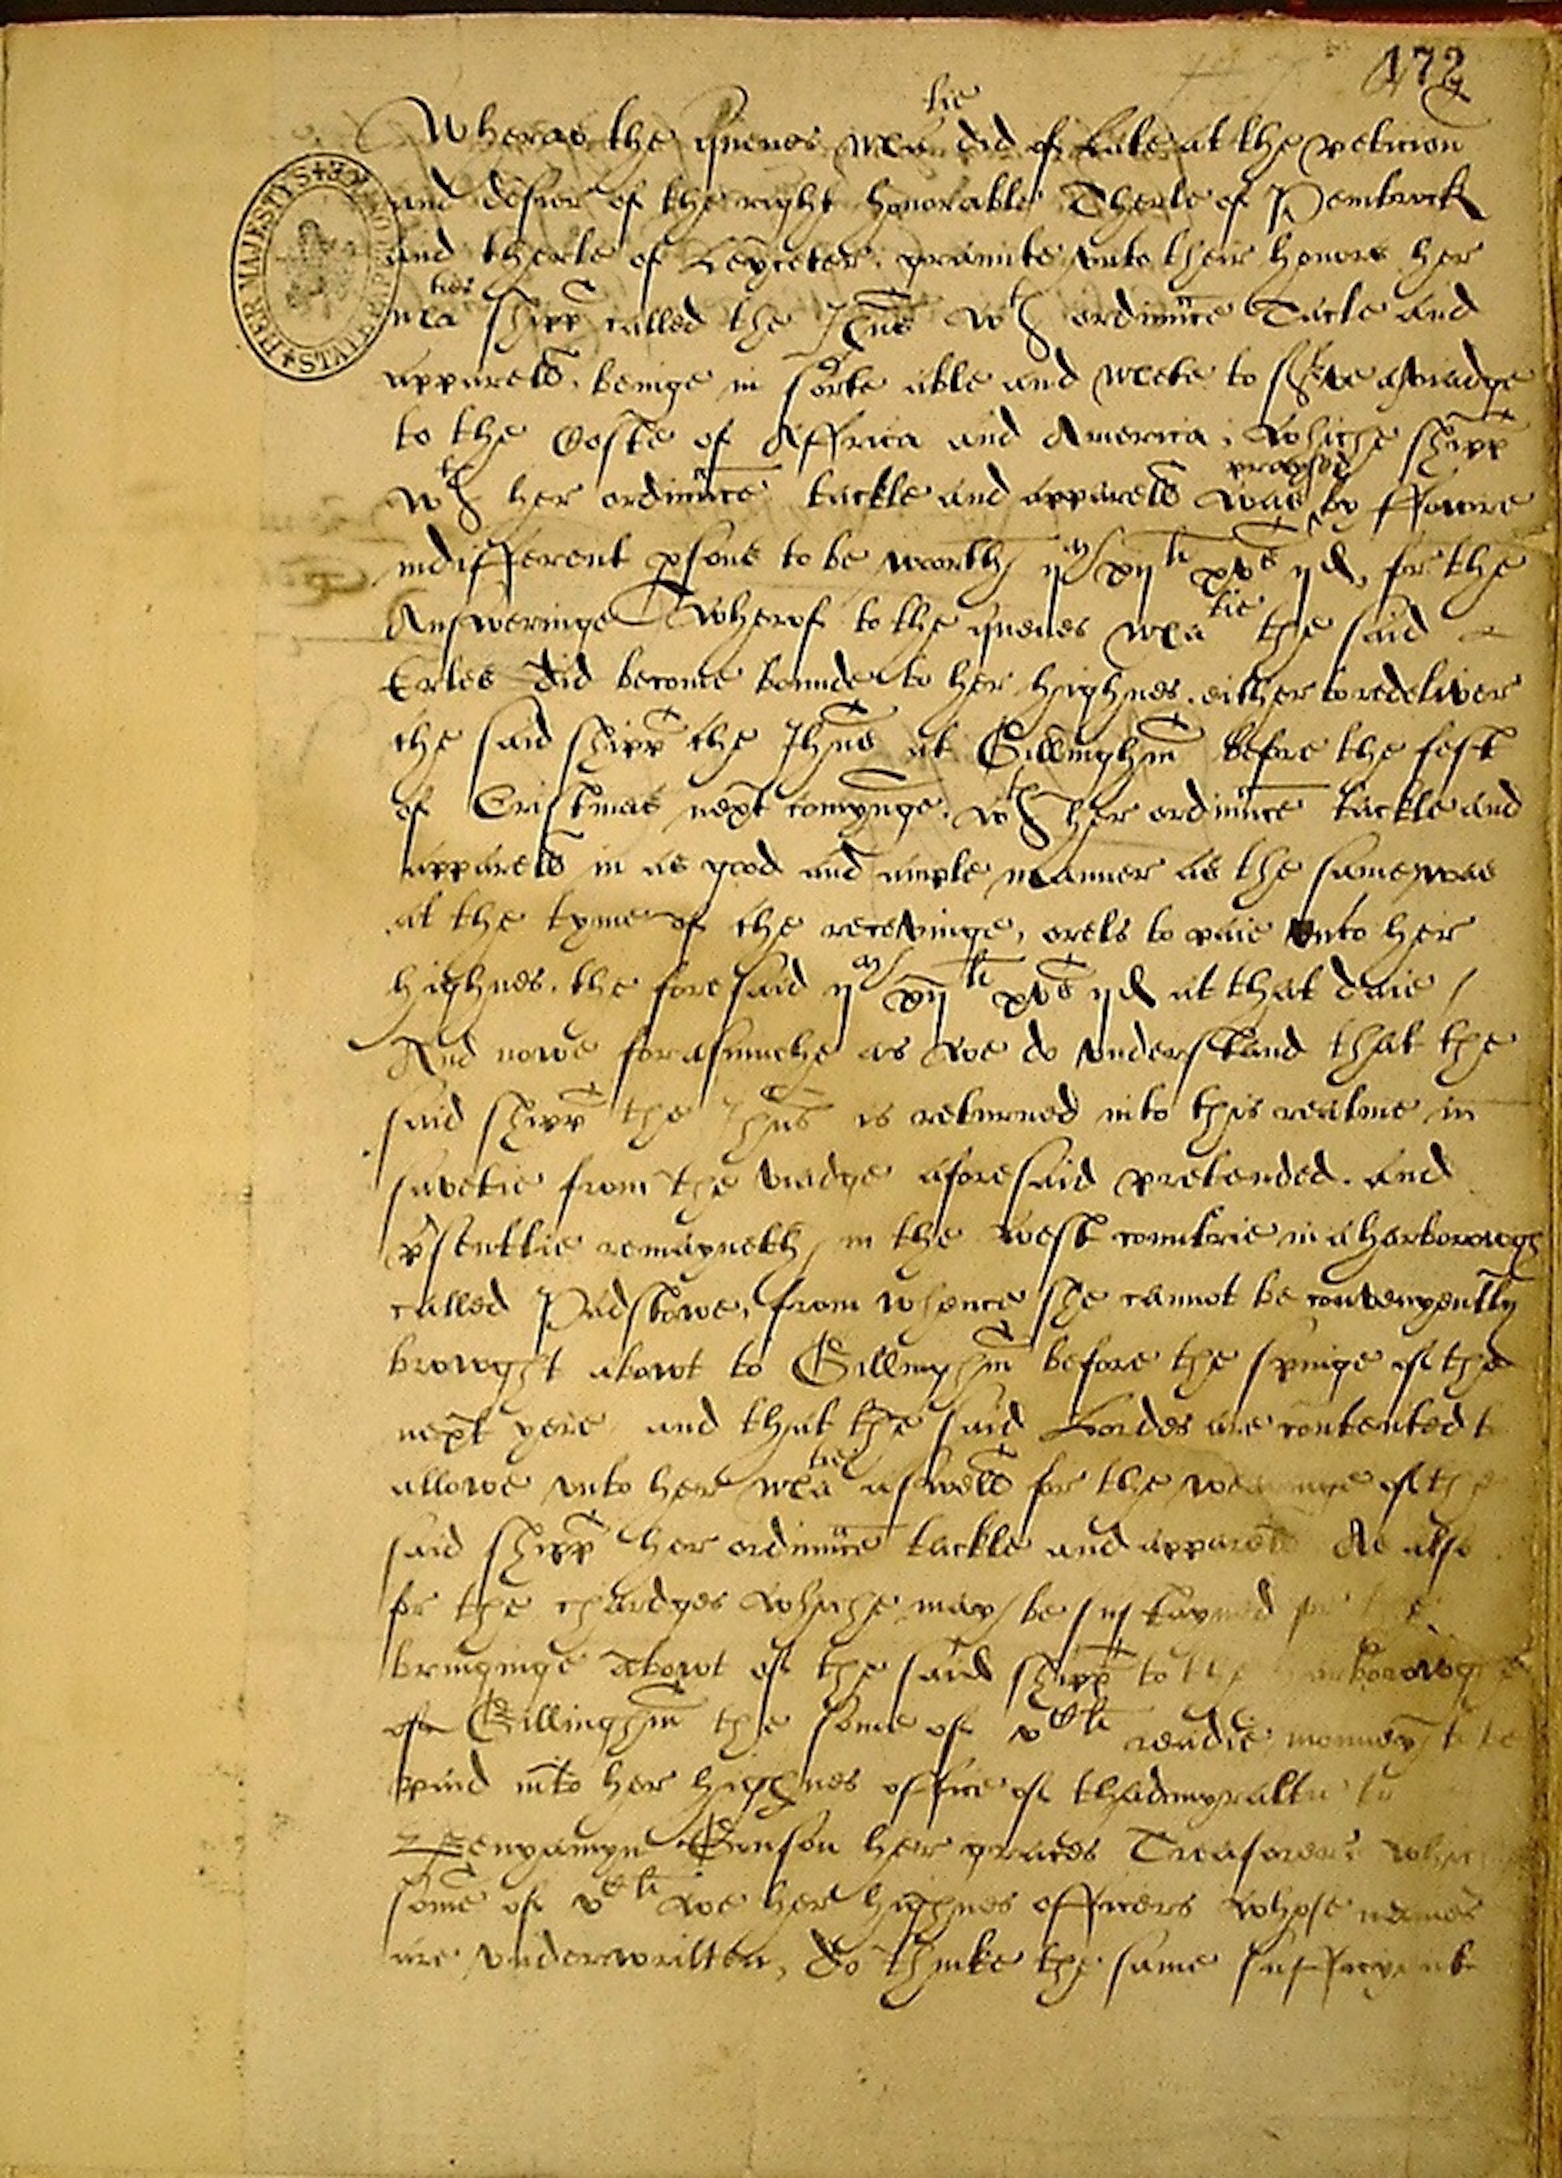 172
Wheras the Quenes Ma^tie did of late at the peticion
and desier of the right honorable Therle of Pembrock
and therle of Leyceter. graunte unto their honors her
Ma^ties shipp called the Jhus w^th ordinnce Tacle and
apparell. beinge in sorte able and meete to serve a viadge
to the Coste of Affrica and America; Whiche shipp
w^th her ordinnce tackle and apparell was praysed by ffowre
indifferent psons to be worth ij^m xij^li xv^s ij^d, for the
Answeringe Wherof to the Quenes Ma^tie the said
Erles did become bounde to her highnes. either to redeliver
the said shipp the Jhus at Gillinghm before the fest
of Cristmas next comynge. w^th her ordinnce tackle and
apparell in as good and ample manner as the same was
at the tyme of the receavinge, orels to paie unto her
highnes. the foresaid ij^m xij^li xv^s ij^d at that daie /
And nowe forasmuche as we do understand that the
said shipp the Jhus is returned into this realme in
savetie from the viadge aforesaid pretended. and
psentlie remayneth in the west countrie in a harborowgh
called Padstowe, from whence she cannot be convenyently
browght abowt to Gillinghm before the springe of the
next yere and that the said Lordes are contented t
allowe unto her Ma^tie aswell for the wearinge of the
said shipp her ordinnce tackle and apparell As also
for the chardges whiche may be sustayned for the
bringinge abowt of the said shipp to the harborowghe
of Gillinghm the some of v^c li readie monney to be
paid into her highnes office of thadmyraltie to
Benyamyn Gonson her graces Treasorer: whic
some of v^c li we her highnes officers whose names
are underwritten, do thinke the same suffycyent
HER MAJESTYS STATE PAPER OFFICE